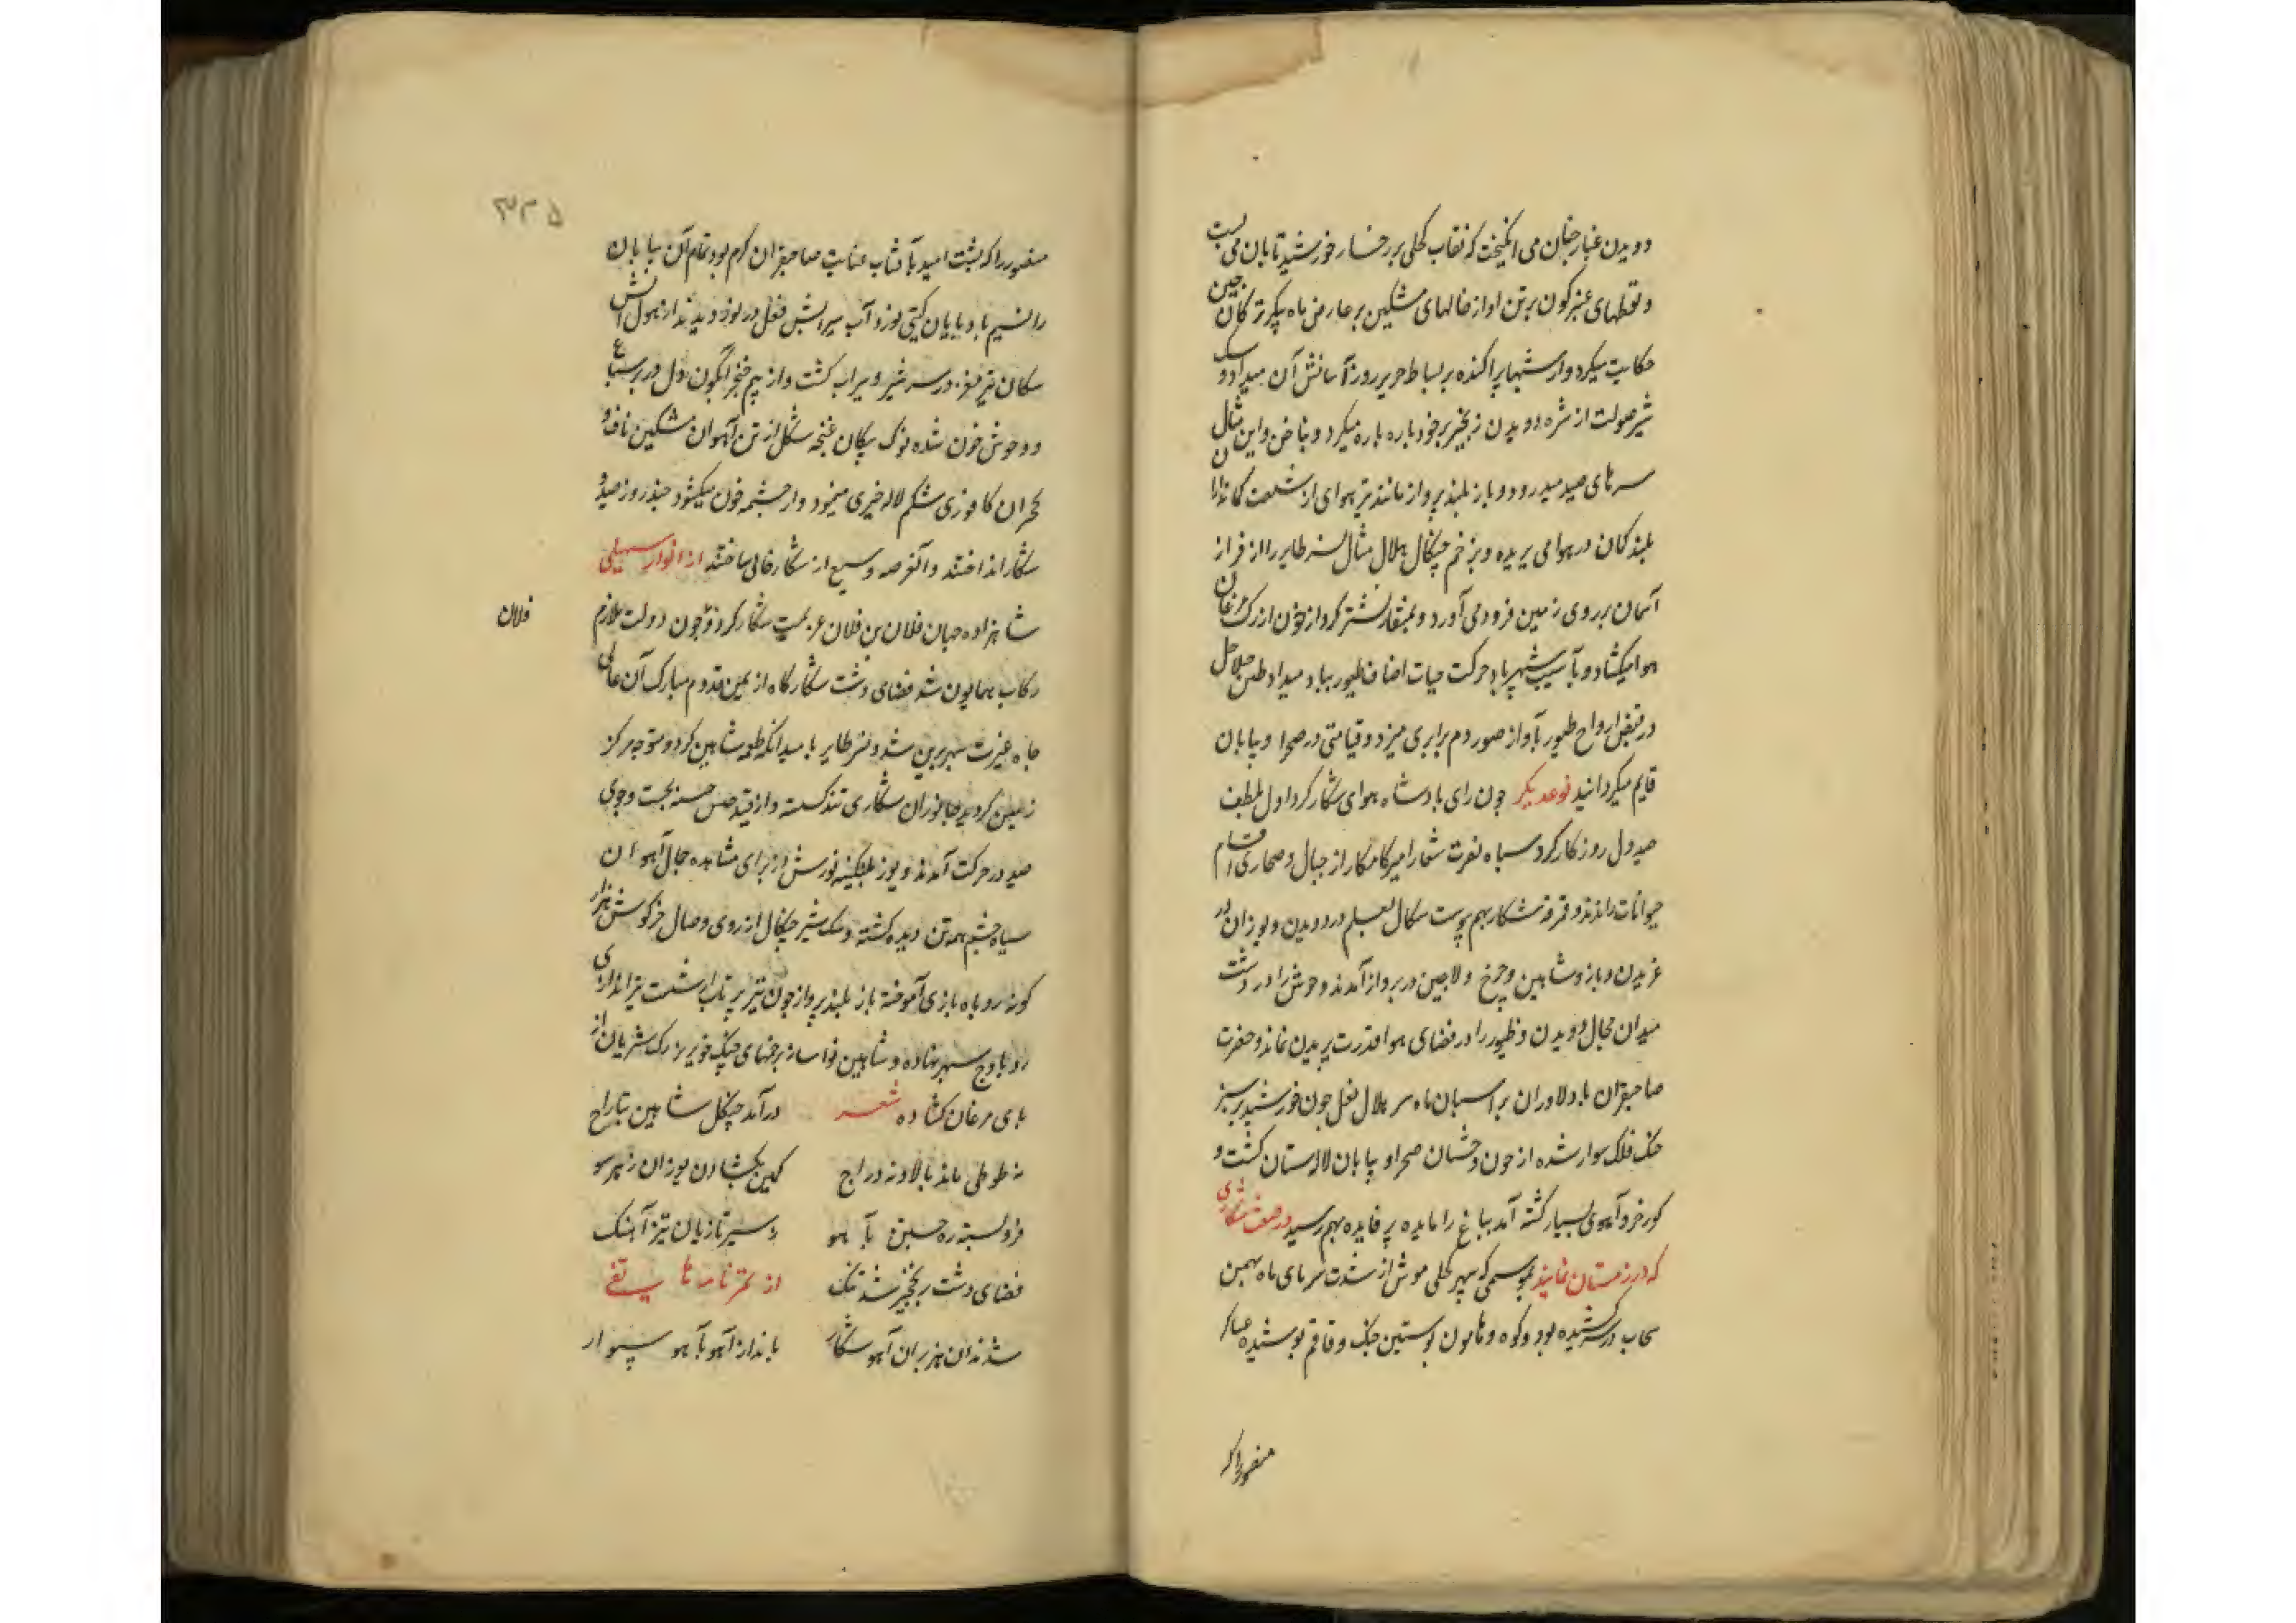 دویدن غبار چنان می انکیخت که نقاب کحلی بر رخسار خورشید تابان می بست
و نقطهای عنبرکون بر تن او از خالهای مشکین بر عارض ماه پیکر ترکان چین
حکایت میکرد و از شبها پراکنده بر بساط حریر روز آسا نشان میداد و سک
شیر صولت از شره دویدن زنجیر بر خود پاره پاره میکرد و بناخن و این مثال
سرهای صید میدرود و باز بلند پرواز مانند تیر هوای از شست کمانداران
بلند کمان در هوا می پریده و بزخم چنکال هلال مثال نسر طایر را از فراز
آسمان بر روی زمین فرود می آورد و بمنقار نشتر کردار خون از رک مرغان
هوا میکشاد و بآسیب شهپر باد حرکت حیات اصناف طیور بباد میداد طنین جلاجل
در قبض ارواح طیور بآواز صور دم برابری میزد و قیامتی در صحرا و بیابان
قایم میکردانید نوعدیکر چون رای پادشاه هوای شکار کرد اول بلطف
صید دل روزکار کرد سپاه نصرت شمار امیر کامکار از جبال و صحاری اقسام
حیوانات راندند و قمرغه شکار بهم پیوست سکال معلم در دویدن و یوزان در
غریدن و باز و شاهین و چرخ و لاچین در پرواز آمدند وحوش را در دشت
میدان مجال دویدن و طیور را در فضای هوا قدرت پریدن نماند و حضرت
صاحبقران با دلاوران بر اسبان ماه سر هلال نعل چون خورشید بر سبز
خنک فلک سوار شده از خون وحشیان صحرا و بیابان لالستان کشت و
کور خر و آهوی بسیار کشته آمد بباغ را مایده پر فایده بهم رسید در صفت شکاری
که در زمستان نمایند بموسمی که سپهر کحلی موش از شدت سرمای ماه بهمن
سحاب در سر کشیده بود و کوه و هامون پوستین خنک و قاقم پوشیده عساکر
منصور را که
۳۳۵
منصور را که پشت امید بآفتاب عنایت صاحبقران کرم بود تمام آن بیابان
را نسیم باد پایان کیتی نورد آب سیر آتش فعل در نوردیدند از هول آتش
سکان تیز مغز در سر شیر و سیراب کشت و از بیم خنجر آبکون دل در بر سباع
و وحوش خون شده نوک پیکان غنچه شکل از تن آهوان مشکین ناف و
نحران کافوری شکم لاله خیری مینمود و از چشمه خون میکشود چند روز صید و
شکار انداختند و آنعرصه وسیع از شکار خالی ساختند از انوار سهیلی
شاهزاده جهان فلان بن فلان عزیمت شکار کرد و چون دولت ملازم
فلان
رکاب همایون شد فضای دشت شکارکاه از یمن قدوم مبارک آن عالی
جاه غیرت سپهر برین شد و نسر طایر با میدانکه طعمه شاهین کردد متوجه مرکز
زمین کردید جانوران شکاری تند کسسته و از قید حبس جسته بجست و جوی
صید در حرکت آمدند و یوز پلنکینه پوش از برای مشاهده جمال آهوان
سیاه چشم همه تن دیده کشته و سک شیر چنکال از روی وصال خرکوش هزار
کونه روباه بازی آموخته باز بلند پرواز چون تیر پرتاب از شست تیر اندازی
رو باوج سپهر نهاده و شاهین نوا ساز بزخمهای چنک خونریز رک شریان از
پای مرغان کشاده شعر درآمد چنکل شاهین بتاراج
نه طوطی ماند بالا و نه دراج کمین بکشادن یوزان ز هر سو
فرو بسته ره جستن بآهو ز سیر تازیان تیز آهنک
فضای دشت بر نخچیر شد تنک از تمرنامه هاتفی
شدند آن هزبران آهو شکار باندازآهو بآهو سوار